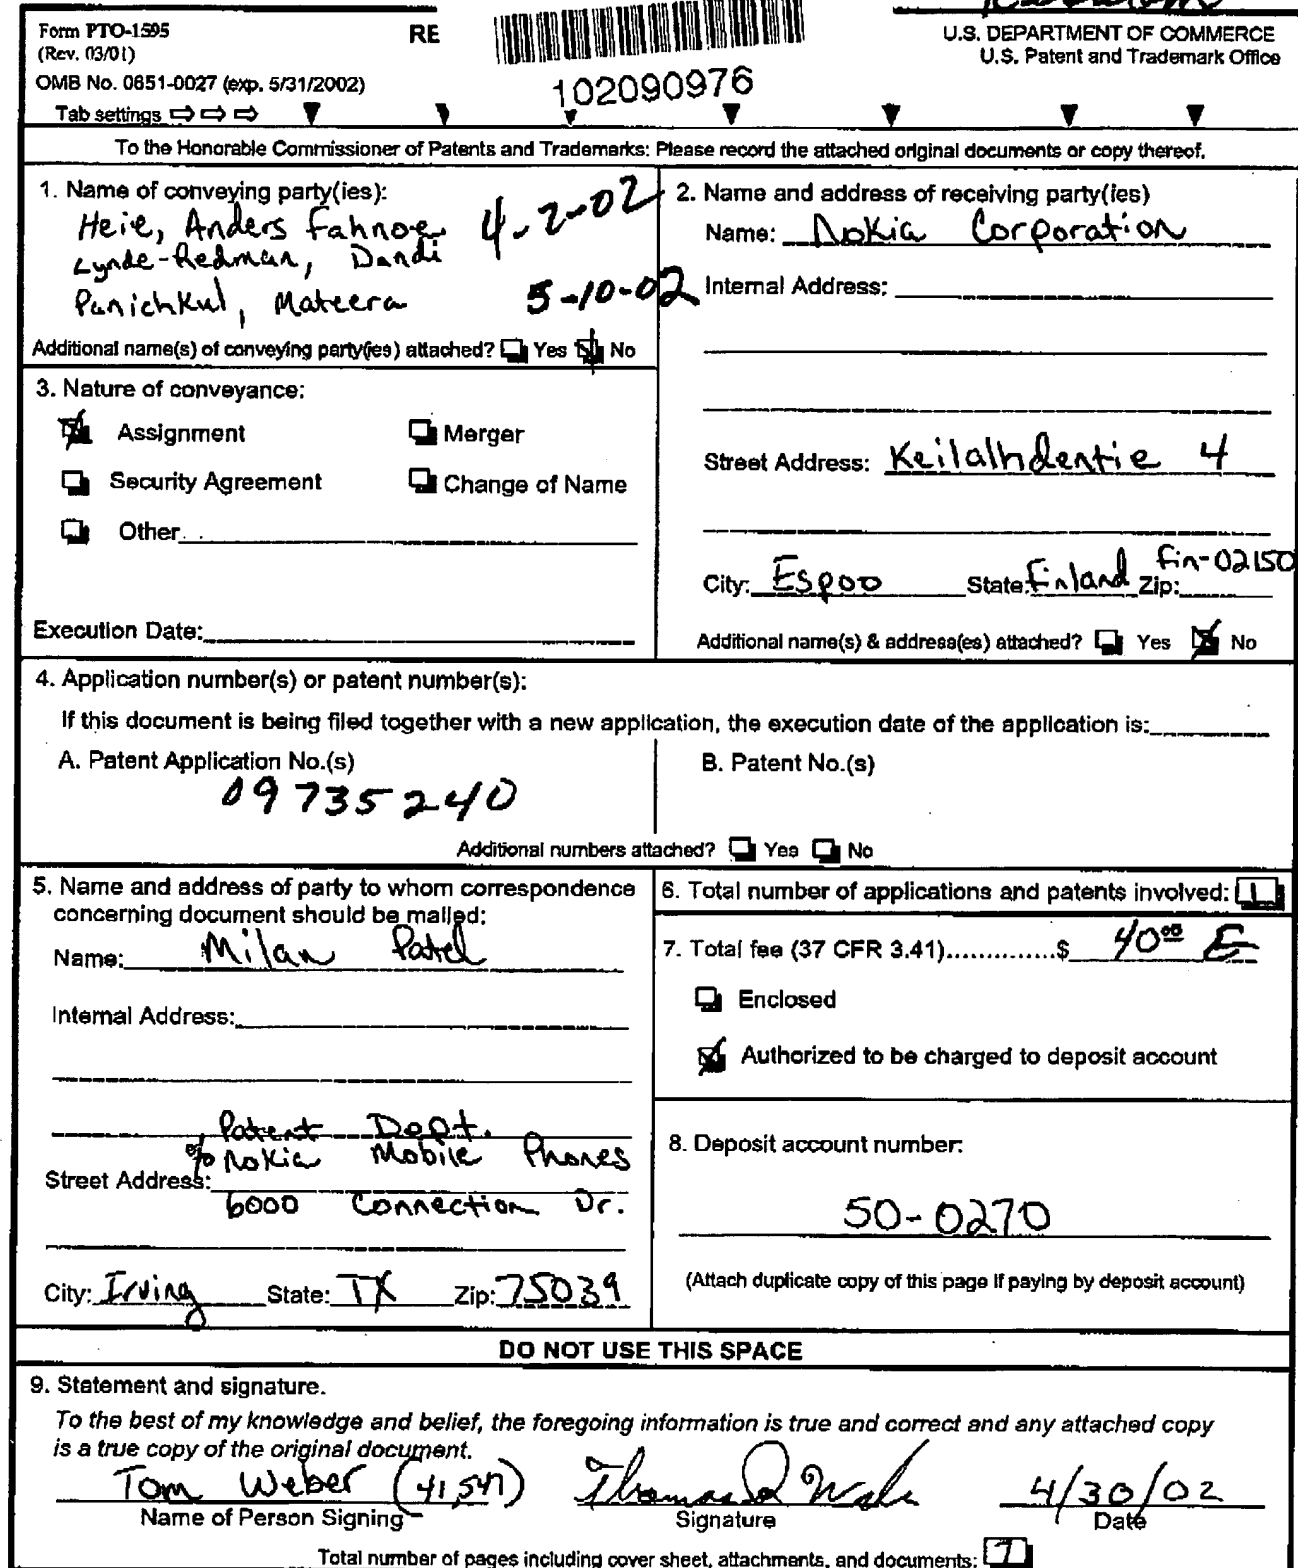 Form PTO-1595
(Rev. 03/01)
OMB No. 0651-0027 (exp. 5/31/2002)
Tab settings
RE
102090976
U.S. DEPARTMENT OF COMMERCE
U.S. Patent and Trademark Office
To the Honorable Commissioner of Patents and Trademarks: Please record the attached original documents or copy thereof.
1. Name of conveying party(ies):
Heie, Anders Fahnoe 4-2-02
Lynde-Redman, Dandi
Panichkul, Mateera 5-10-02
Additional name(s) of conveying party(ies) attached? Yes No
2. Name and address of receiving party(ies)
Name: Nokia Corporation
Internal Address:
Street Address: Keilalhdentie 4
City: Espoo State: Finland Zip: Fin-02150
Additional name(s) & address(es) attached? Yes No
3. Nature of conveyance:
Assignment Merger
Security Agreement Change of Name
Other
Execution Date:
4. Application number(s) or patent number(s):
If this document is being filed together with a new application, the execution date of the application is:
A. Patent Application No.(s)
09735240
B. Patent No.(s)
Additional numbers attached? Yes No
5. Name and address of party to whom correspondence
concerning document should be mailed:
Name: Milan Patel
Internal Address:
Patent Dept.
% Nokia Mobile Phones
Street Address:
6000 Connection Dr.
City: Irving State: TX Zip: 75039
6. Total number of applications and patents involved: 1
7. Total fee (37 CFR 3.41)..............$ 40.00
Enclosed
Authorized to be charged to deposit account
8. Deposit account number:
50-0270
(Attach duplicate copy of this page if paying by deposit account)
DO NOT USE THIS SPACE
9. Statement and signature.
To the best of my knowledge and belief, the foregoing information is true and correct and any attached copy
is a true copy of the original document.
Tom Weber (41,547) 4/30/02
Name of Person Signing Signature Date
Total number of pages including cover sheet, attachments, and documents: 7